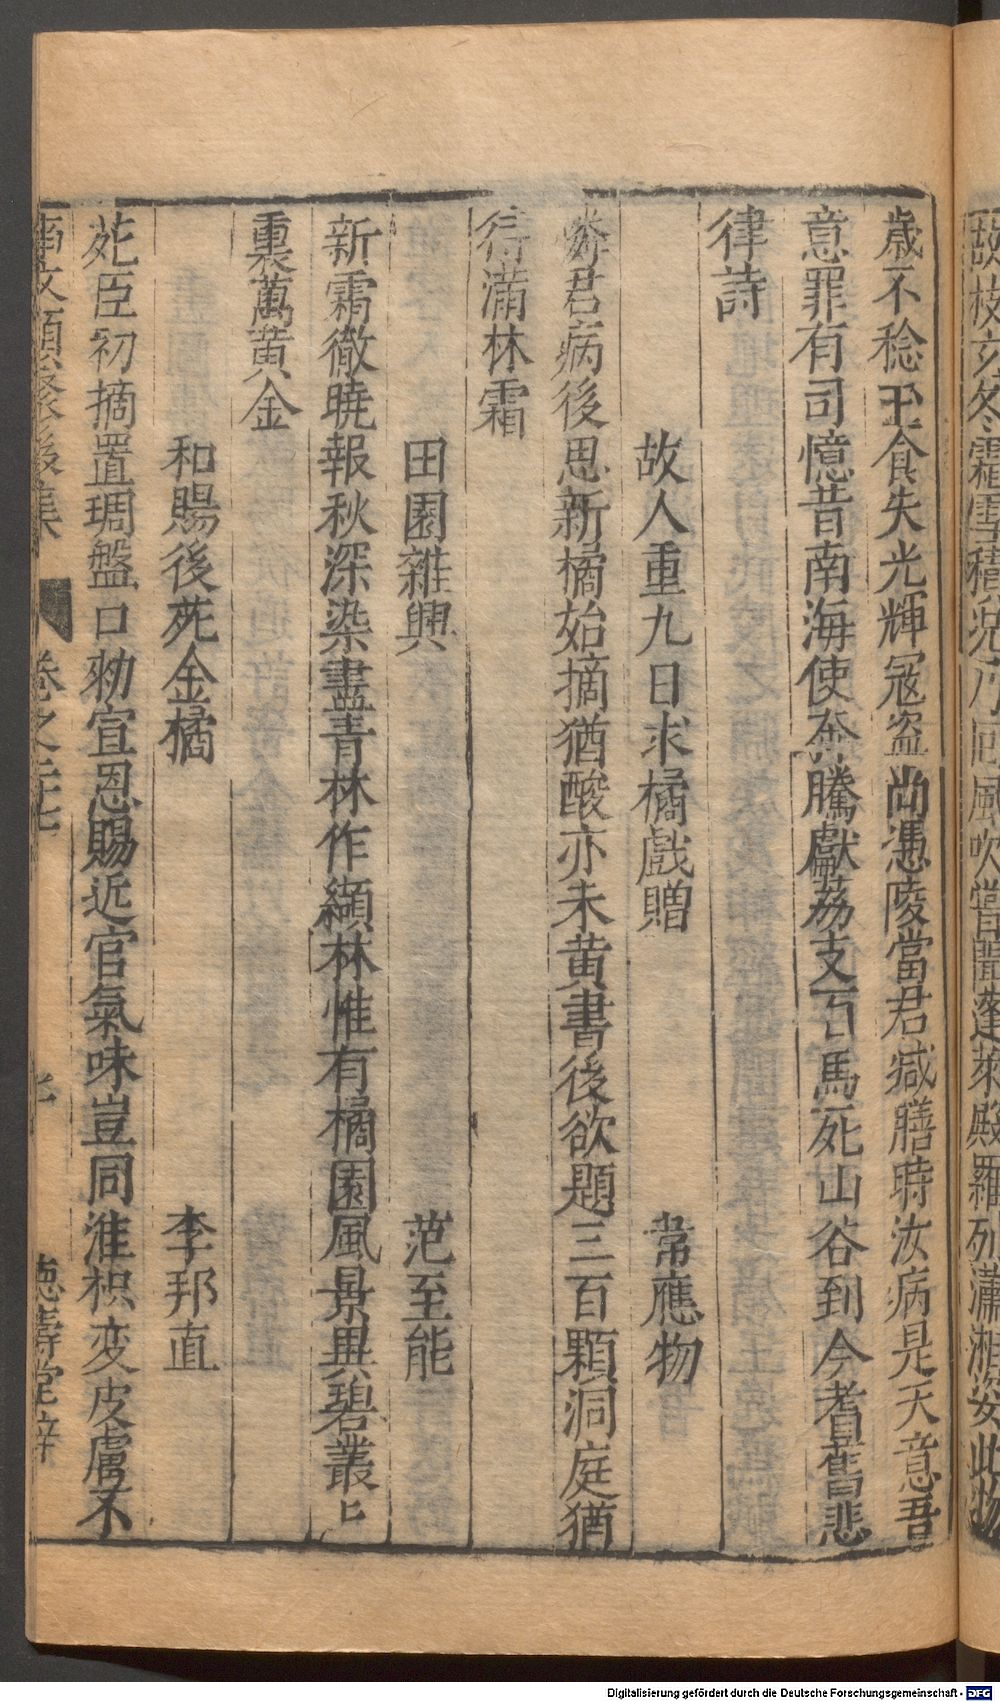 故枝玄冬霜雪積況乃回風吹嘗聞蓬萊殿羅列瀟湘姿此物
歲不稔玉食失光輝寇盗尚憑陵當君减膳時汝病是天意吾
意罪有司憶昔南海使奔騰獻荔支百馬死山谷到今耆舊悲
律詩
故人重九日求橘戲贈 常應物
憐君病後思新橘始摘猶酸亦未黄書後欲題三百顆洞庭猶
待滿林霜
田園雜興 范至能
新霜徹曉報秋深染盡青林作纈林惟有橘園風景異碧叢〻
裏萬黄金
和賜後苑金橘 李邦直
苑臣初摘置琱盤口勑宣恩賜近官氣味豈同淮枳变皮膚不
事文類聚後集 卷之二十七 德壽堂梓
Digitalisierung gefördert durch die Deutsche Forschungsgemeinschaft - DFG